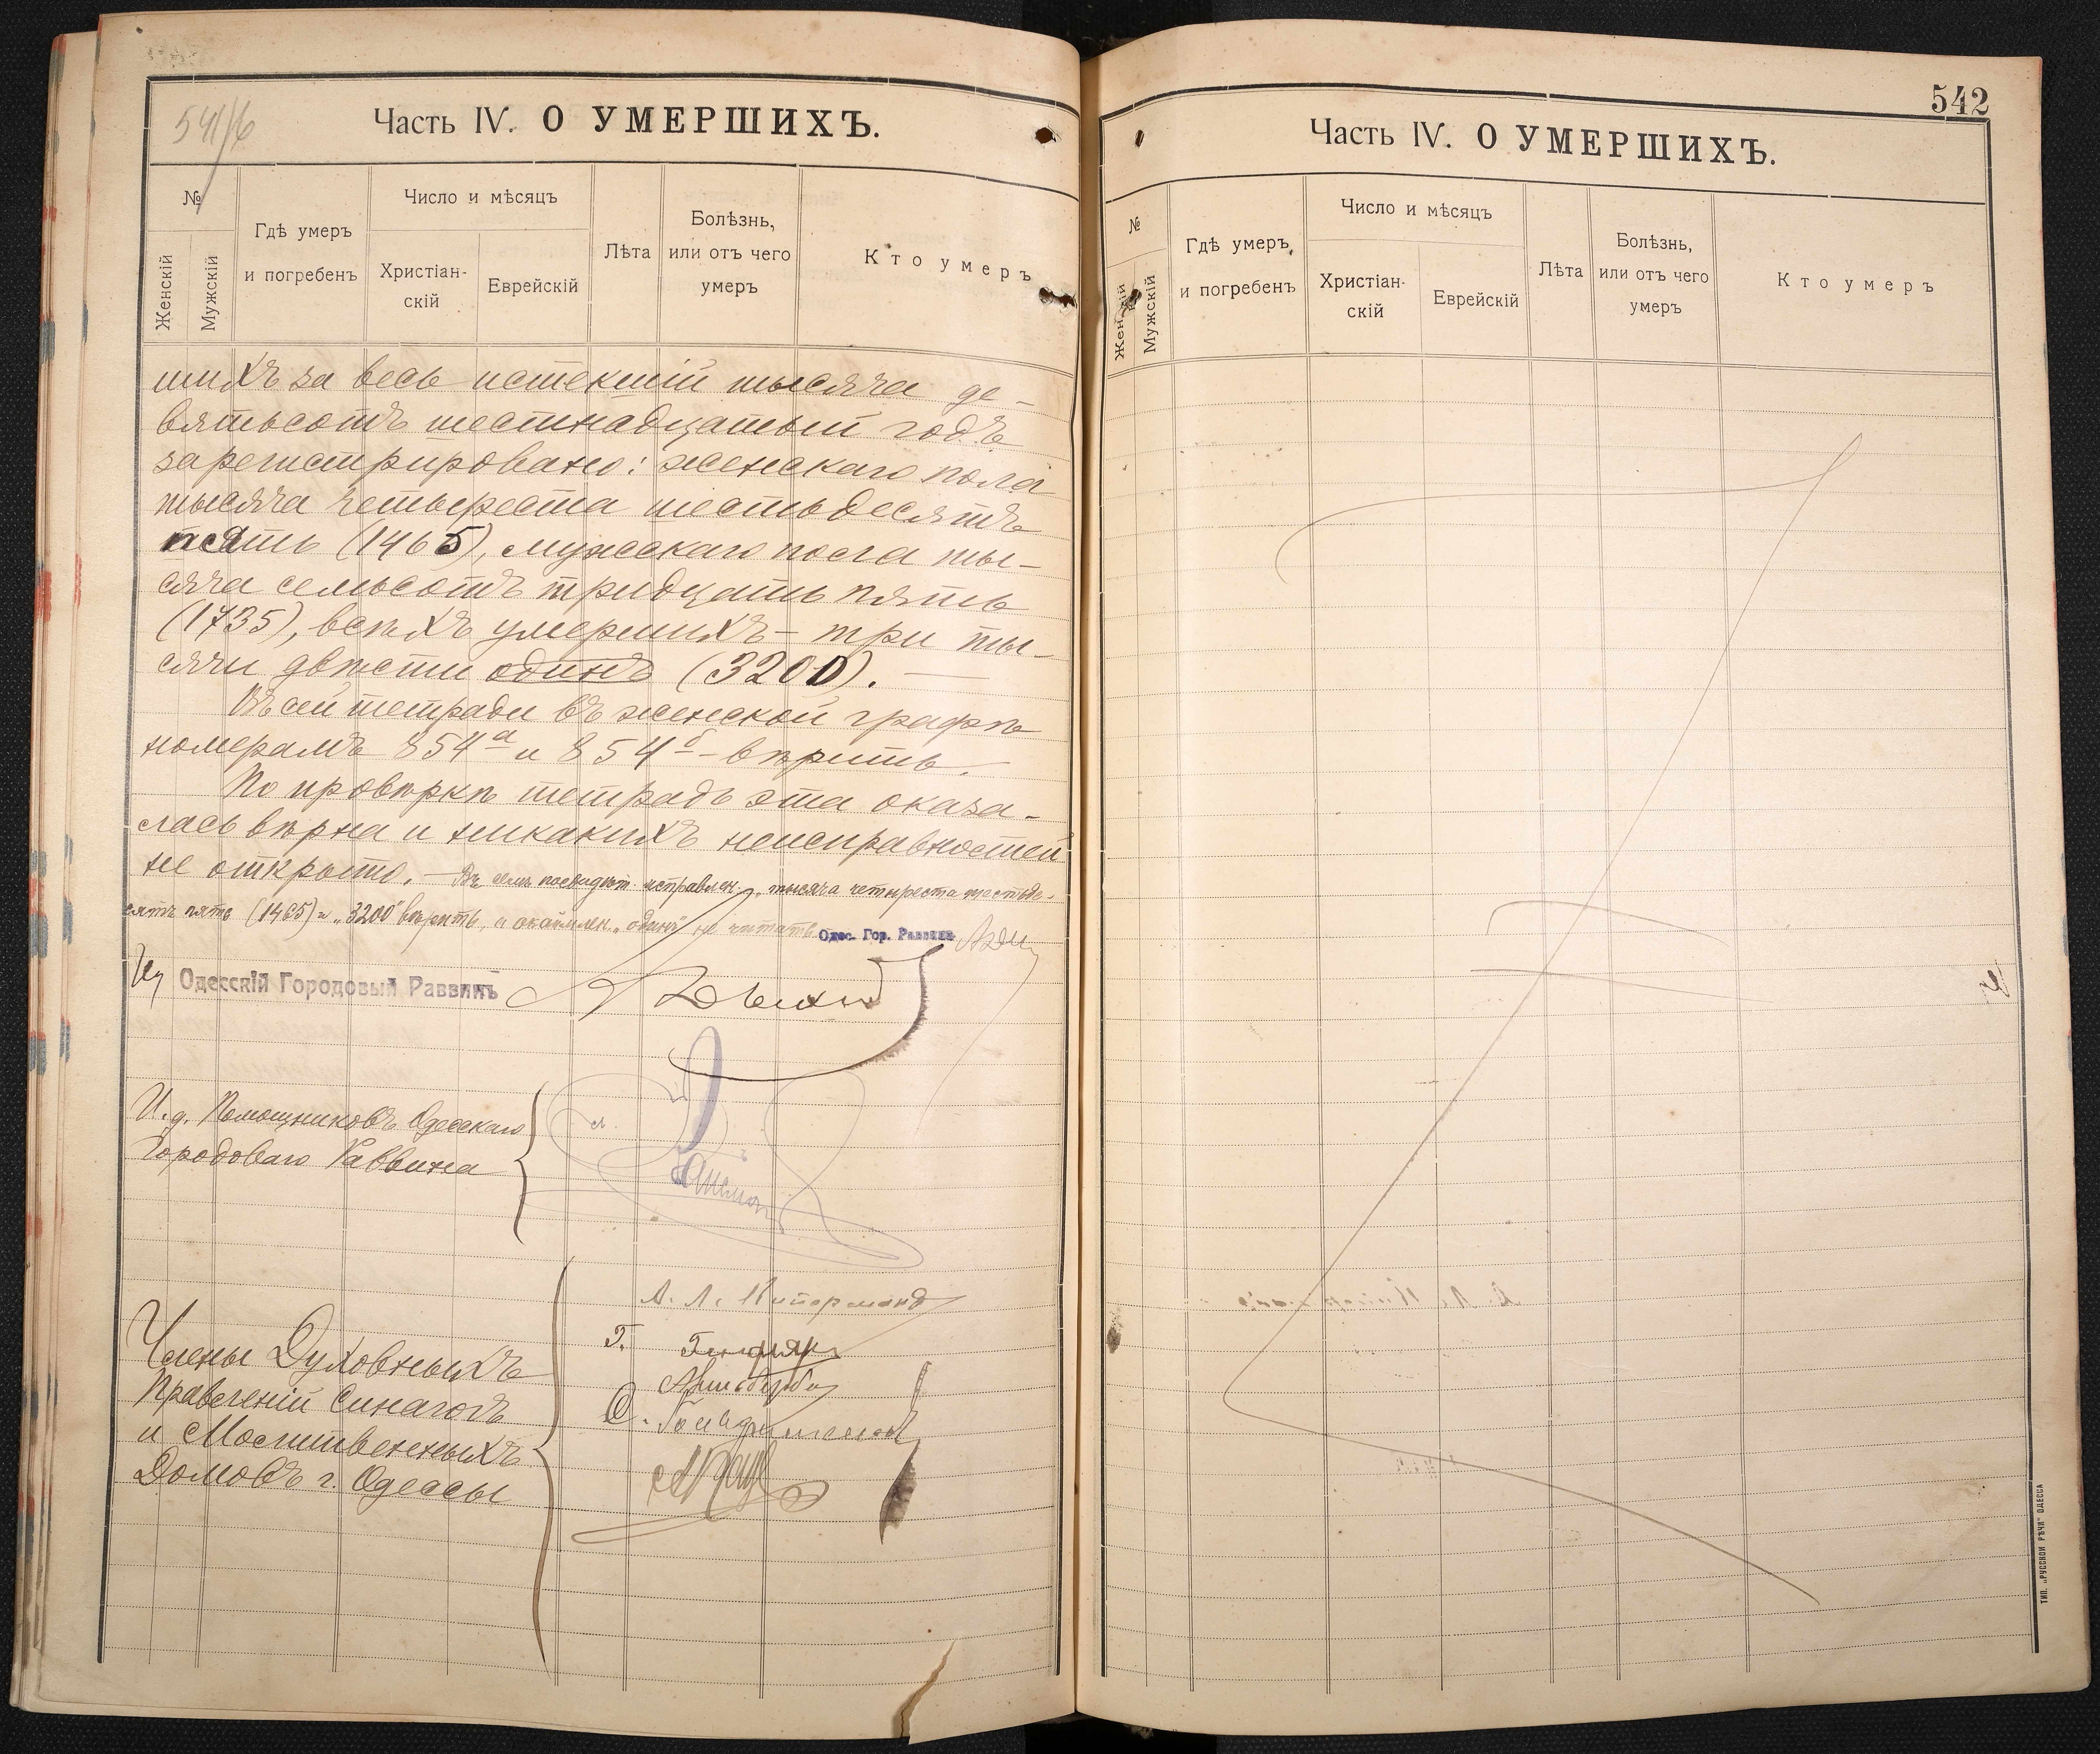 541/6
Часть IV. О УМЕРШИХЪ.
№
Женскій
Мужскій
Гдѣ умеръ
и погребенъ
Число и мѣсяцъ
Христіан-
скій
Еврейскій
Лѣта
Болѣзнь,
или отъ чего
умеръ
Кто умеръ
шихъ за весь истекшій тысяча де-
вятьсотъ шестнадцатый годъ
зарегистрировано: женскаго пола
тысяча четыреста шестьдесятъ
пять (1465), мужскаго пола ты-
сяча семьсотъ тридцать пять
(1735), всѣхъ умершихъ - три ты-
сячи двѣсти одинъ (3200).
Въ сей тетради въ женской графѣ
номерамъ 854а и 854б - вѣрить.
По провѣркѣ тетрадь эта оказа-
лась вѣрна и никакихъ неисправностей
не открыто. - Въ семъ исправлен. „тысяча четыреста шестьде-
сятъ пять (1465)" и „3200" вѣрить, а „одинъ" не читать. Одес. Гор. Раввинъ
Одесскій Городовый Раввинъ
И. д. Помощниковъ Одесскаго
Городоваго Раввина
Члены Духовныхъ
Правленій Синагогъ
и Молитвенныхъ
Домовъ г. Одессы
А. Л.
Г.
С.
542
Часть IV. О УМЕРШИХЪ.
№
Женскій
Мужскій
Гдѣ умеръ
и погребенъ
Число и мѣсяцъ
Христіан-
скій
Еврейскій
Лѣта
Болѣзнь,
или отъ чего
умеръ
Кто умеръ
ТИП. „РУССКОЙ РѢЧИ" ОДЕССА